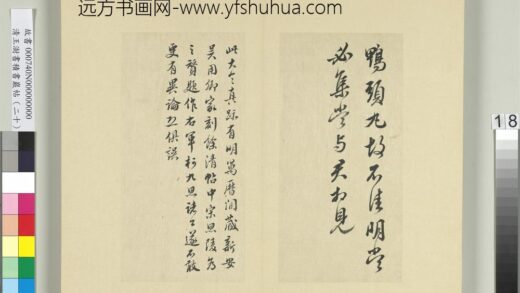 远方书画网-www.yfshuhua.com
鴨頭丸故不佳明當
必集當与君相見
此大令真跡有明萬曆間藏新安
吳用卿家刻餘清帖中宋思陵為
之贊題作右軍柯九思諸公遂不敢
更有異論俱誤
故書 000740N000000000
清王澍書積書巖帖(二十)
18